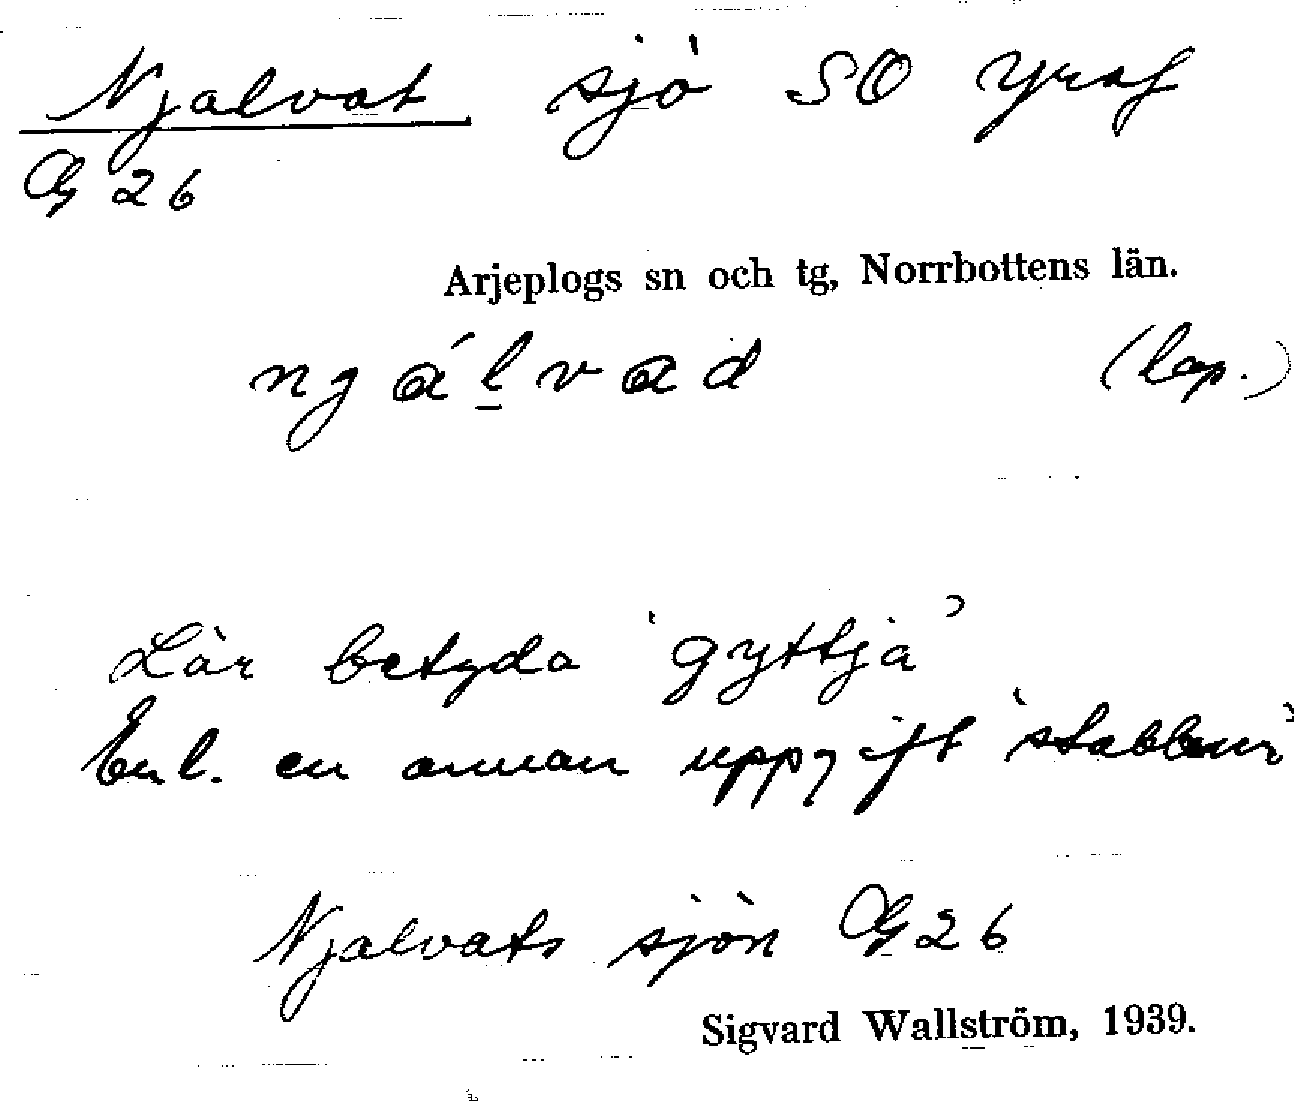 Njalvat sjö SO Yraf
G 26
Arjeplogs sn och tg, Norrbottens län.
njálvad (lap.)
Lär betyda 'gyttja'
Enl. en annan uppgift 'stabbur'
Njalvats sjön G 26
Sigvard Wallström, 1939.